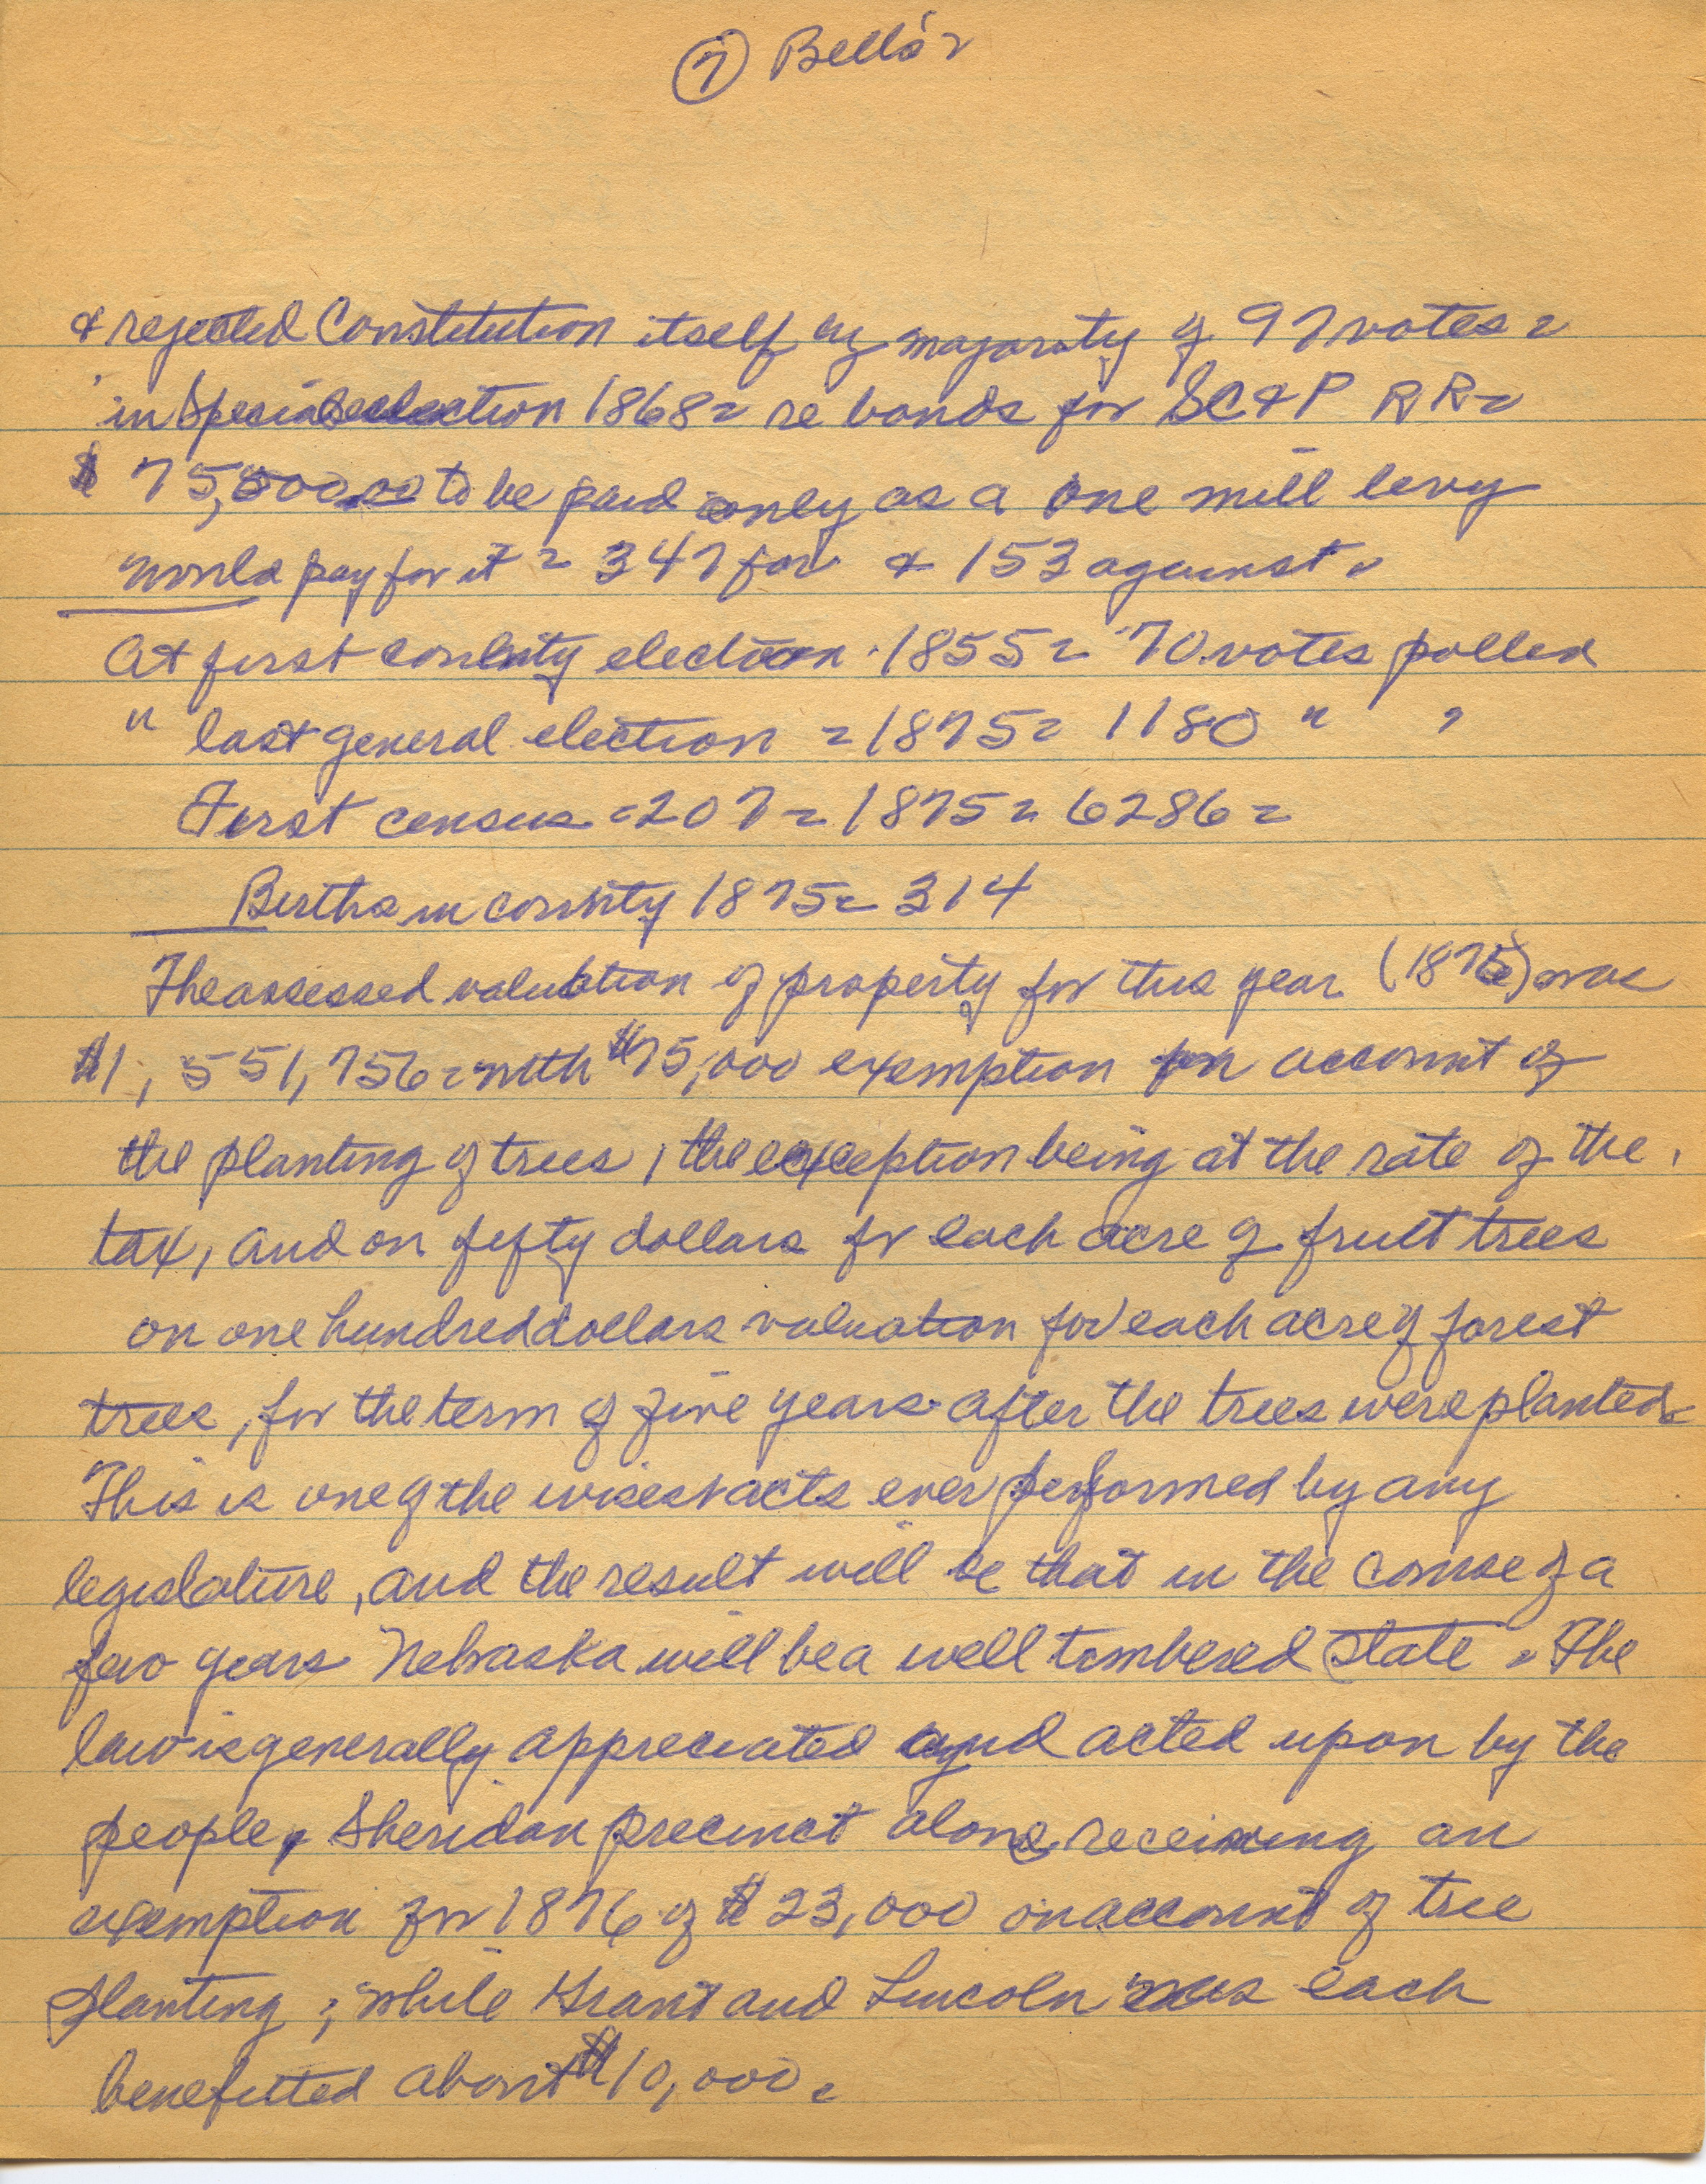 (7) Bell's =
& rejected Constitution itself by majority of 97 votes =
in Special election 1868 = re bonds for SC&P RR =
$75,000.00 to be paid only as a one mill levy
would pay for it = 347 for & 153 against.
At first county election 1855 = 70 votes polled
" last general election = 1875 = 1180 " "
First census = 207 = 1875 = 6286 =
Births in county 1875 = 314
The assessed valuation of property for this year (1876) was
$1,551,756 = with $75,000 exemption on account of
the planting of trees, the exception being at the rate of the
tax, and on fifty dollars for each acre of fruit trees
on one hundred dollars valuation for each acre of forest
trees, for the term of five years after the trees were planted.
This is one of the wisest acts ever performed by any
legislature, and the result will be that in the course of a
few years Nebraska will be a well tombered state. The
law is generally appreciated and acted upon by the
people, Sheridan precinct alone receiving an
exemption for 1876 of $23,000 on account of tree
planting; while Grant and Lincoln was each
benefitted about $10,000.